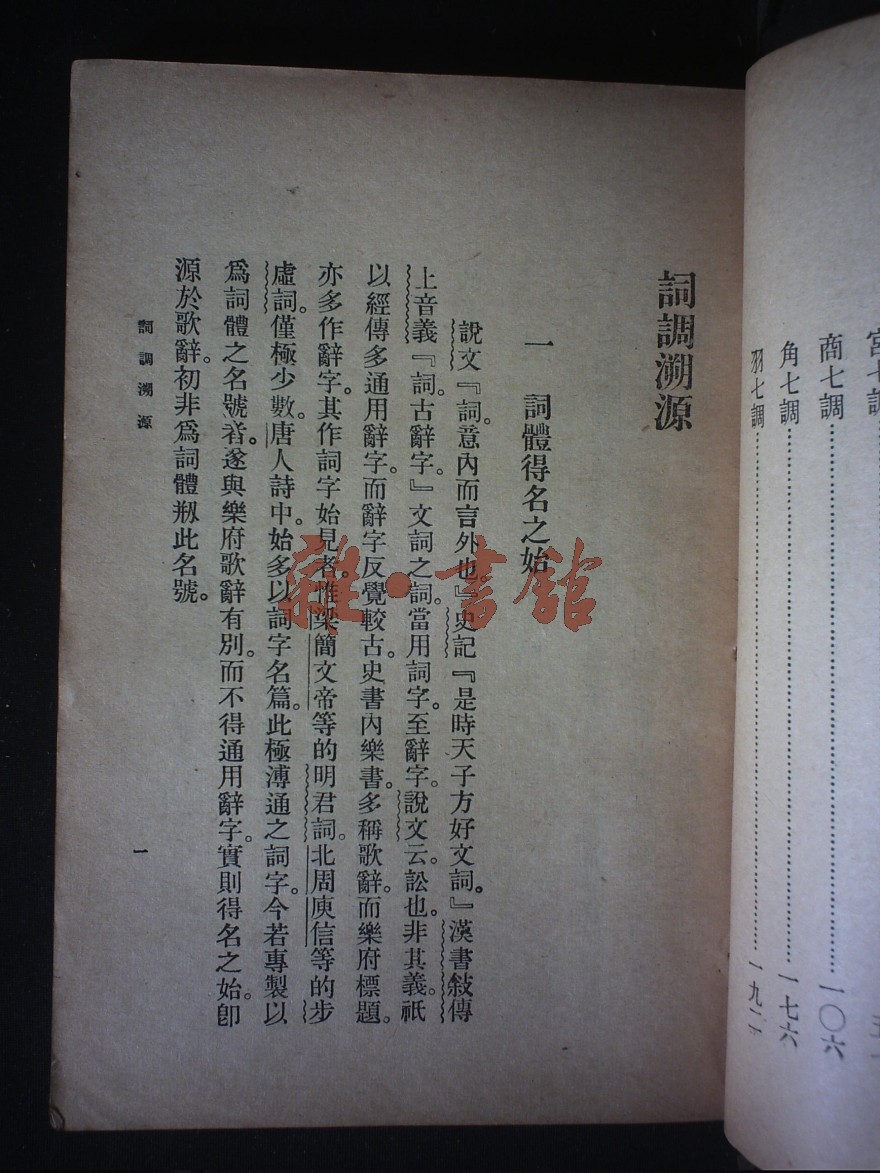 宮七調
商七調⋯⋯⋯⋯一〇六
角七調⋯⋯⋯⋯一七六
羽七調⋯⋯⋯⋯一九二
詞調溯源
一　詞體得名之始
說文『詞。意內而言外也。』史記『是時天子方好文詞。』漢書敍傳
上音義『詞。古辭字。』文詞之詞。當用詞字。至辭字。說文云。訟也。非其義。祇
以經傳多通用辭字。而辭字反覺較古。史書內樂書。多稱歌辭。而樂府標題。
亦多作辭字。其作詞字始見者。惟梁簡文帝等的明君詞。北周庾信等的步
虛詞。僅極少數。唐人詩中。始多以詞字名篇。此極溥通之詞字。今若專製以
爲詞體之名號者。遂與樂府歌辭有別。而不得通用辭字。實則得名之始。卽
源於歌辭。初非爲詞體剏此名號。
詞調溯源
一
雜·書館